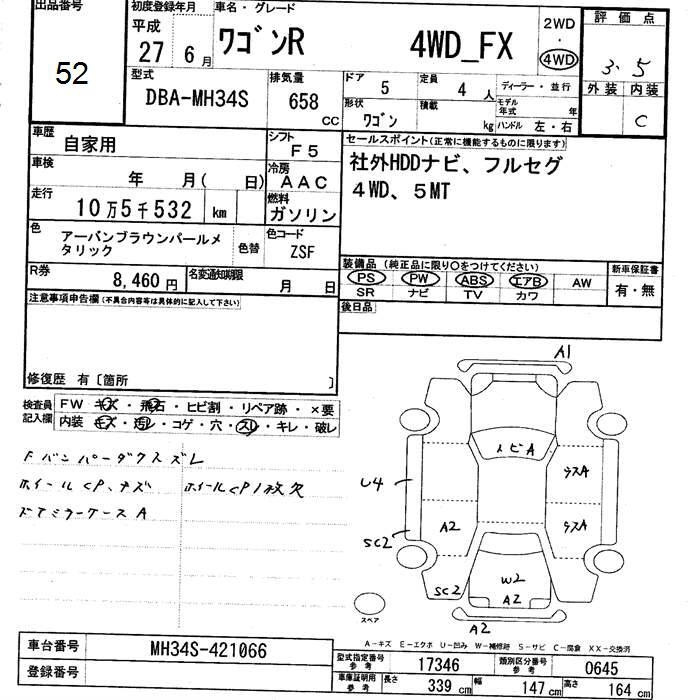 出品番号 初度登録年月 車名・グレード 2WD 評価点
52 平成 27 6月 ワゴンR 4WD_FX ・ 4WD 3.5
型式 排気量 ドア 5 定員 4人 ディーラー・並行 外装 内装
DBA-MH34S 658 cc 形状 ワゴン 積載 kg モデル年式 年 C
ハンドル 左・右
車歴 自家用 シフト F5 セールスポイント(正常に機能するものに限ります)
車検 年 月( 日) 冷房 AAC 社外HDDナビ、フルセグ
走行 10万5千532 km 燃料 ガソリン 4WD、5MT
色 アーバンブラウンパールメタリック 色替 色コード ZSF
R券 8,460円 名変通知期限 月 日 装備品(純正品に限り○をつけてください) 新車保証書
PS PW ABS エアB AW 有・無
SR ナビ TV カワ
注意事項申告欄(不具合内容等は具体的に記入して下さい) 後日品
修復歴 有〔箇所 〕
検査員記入欄 FW キズ・飛石・ヒビ割・リペア跡・×要
内装 キズ・汚レ・コゲ・穴・スレ・キレ・破レ
ホイールCP、キズ ホイールCP1枚欠
ドアミラーケースA
A1
トビA
U4
ウスA
SC2
A2
ウスA
SC2
W2
A2
スペア
A2
A-キズ E-エクボ U-凹み W-補修跡 S-サビ C-腐食 XX-交換済
車台番号 MH34S-421066
登録番号
型式指定番号 参考 17346 類別区分番号 参考 0645
車庫証明用 参考 長さ 339 cm 幅 147 cm 高さ 164 cm